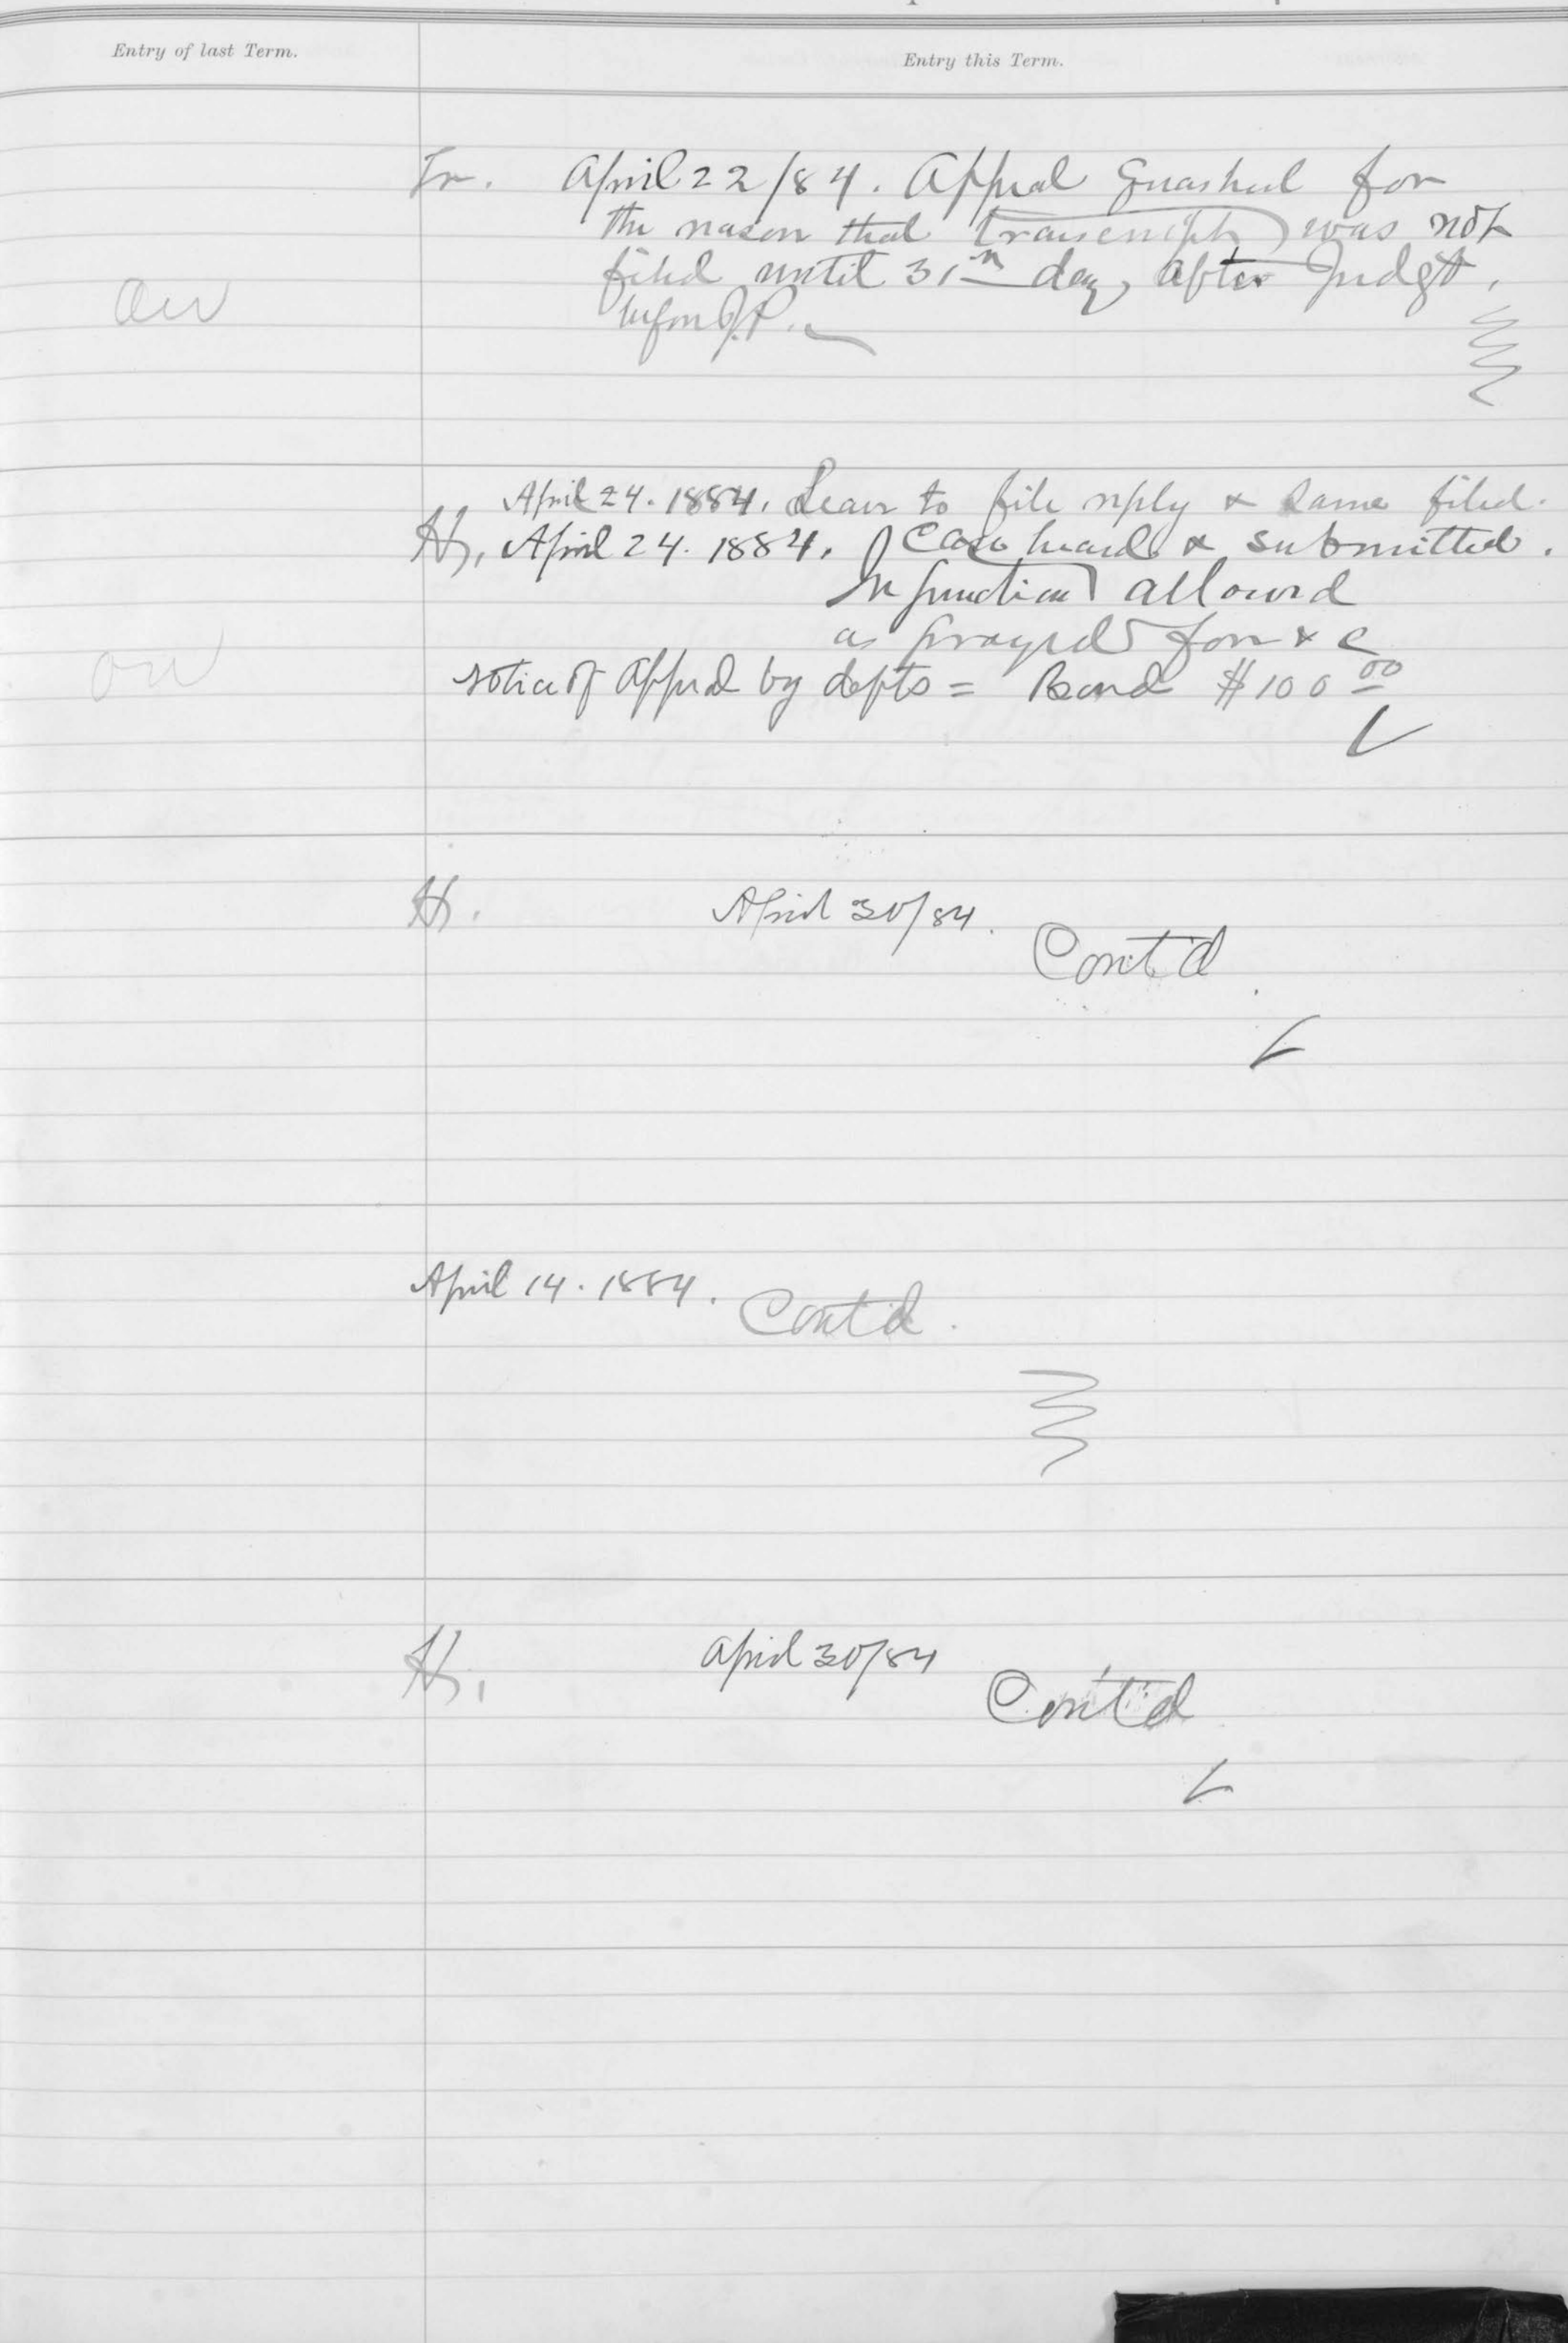 Entry of last Term.
Entry this Term.
Tr. April 22/84. Appeal Quashed for
the reason that transcript was not
filed until 31st day after Judgt.
before J.P.
April 24. 1884. Leave to file reply & same filed.
H. April 24. 1884. Case heard & submitted.
Injunction allowed
as prayed for & c
notice of Appeal by defts = Bond $100 00
H. April 30/84.
Cont'd
April 14. 1884. Cont'd.
H. April 30/84
Cont'd